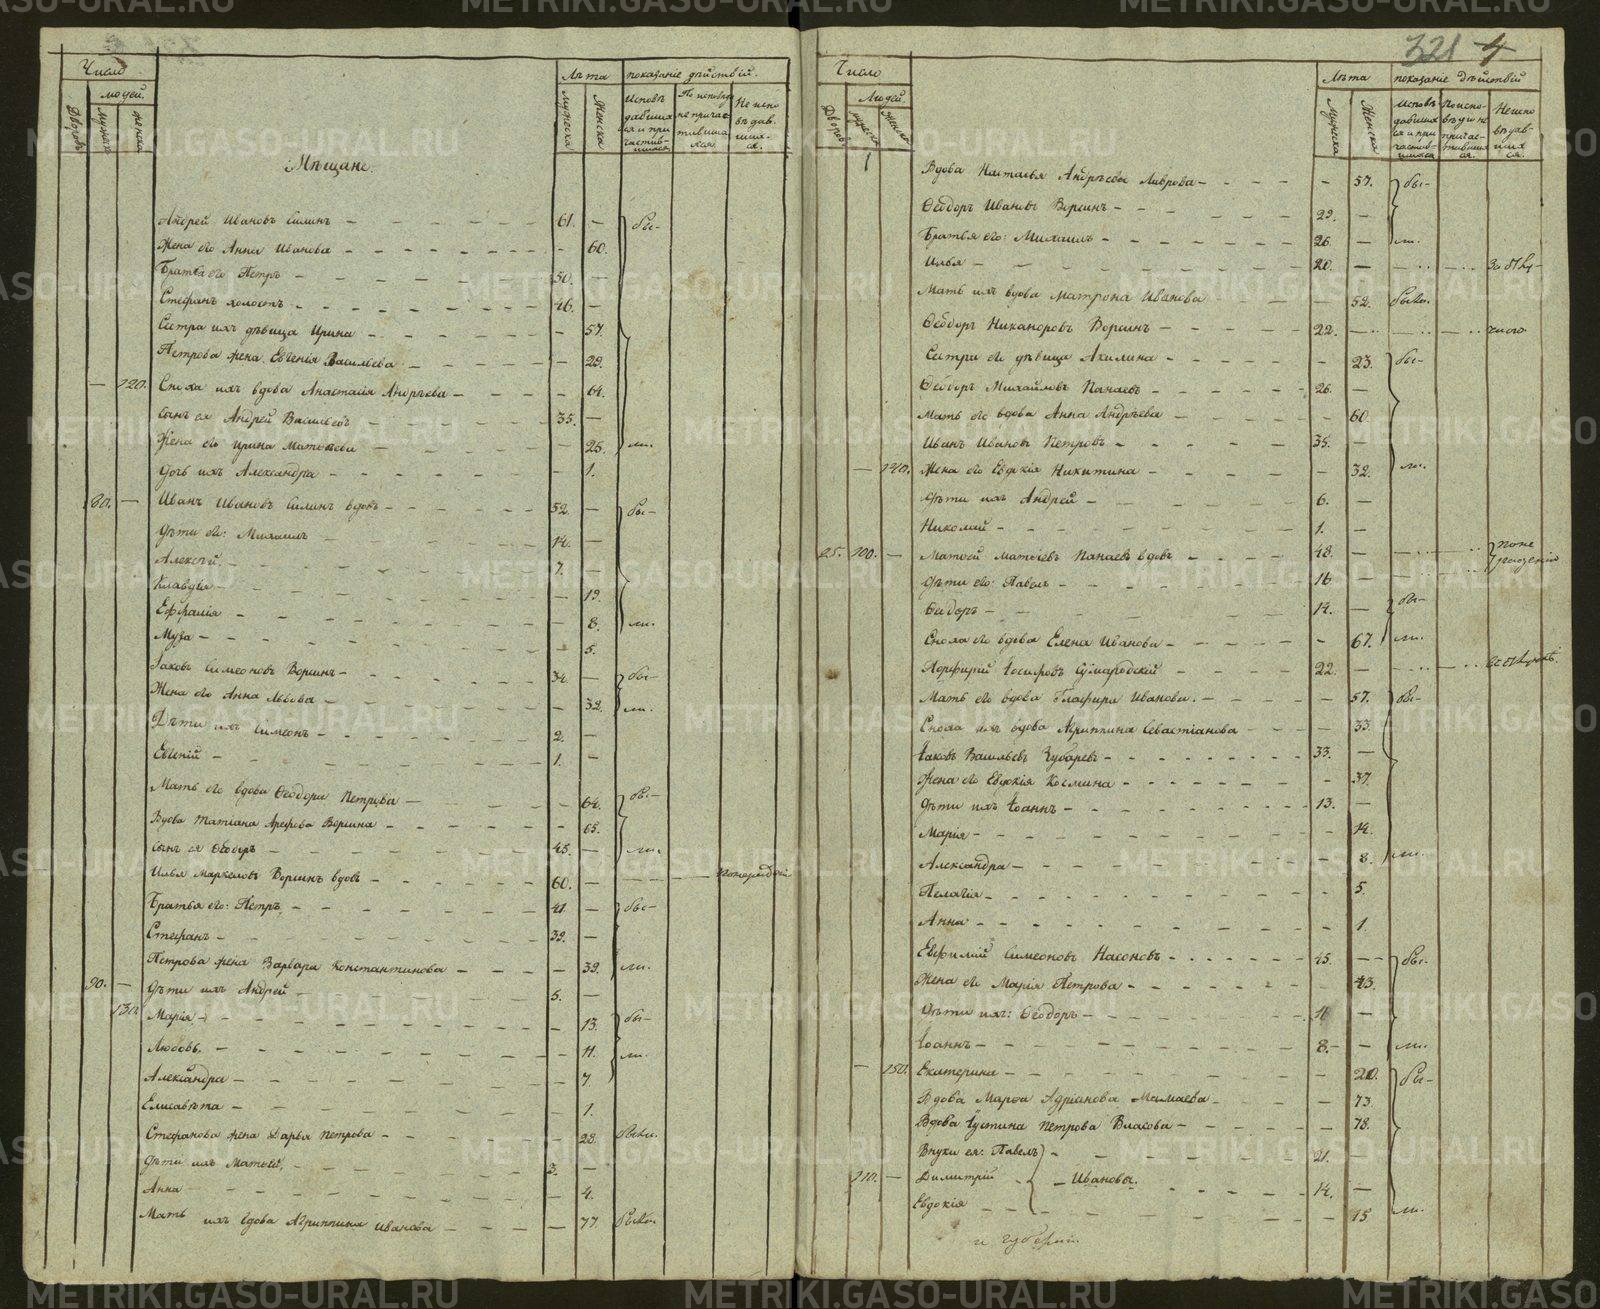 Число
людей.
Дворовъ
мужеск
женска
Лѣта
показаніе дѣйствій.
мужеска
Женска
Исповѣ
давших
ся и при
частив-
шихся
По исповѣди
не причас
тивших
ся
Не испо
вѣдав-
ших-
ся.
Мѣщане.
Андрей Ивановъ Силинъ 61. — бы-
Жена его Анна Иванова — 60.
Братья его Петръ 50. —
Стефанъ холостъ 46. —
Сестра ихъ дѣвица Ирина — 57.
Петрова жена Евгенія Васильева — 29.
— 120. Сноха ихъ вдова Анастасія Андреева — 64.
Сынъ ея Андрей Васильевъ 35. —
Жена его Ирина Матѳеева — 25. ли.
Дочь ихъ Александра — 1.
80. — Иванъ Ивановъ Силинъ вдовъ 52. — бы-
Дѣти его: Михаилъ 14. —
Алексѣй 7. —
Клавдія — 19.
Ефталія — 8. ли.
Муза — 5.
Іаковъ Симеоновъ Воршинъ 34. — бы-
Жена его Анна Львова — 32. ли.
Дѣти ихъ Симеонъ 2. —
Евгеній 1. —
Мать его вдова Ѳеодора Петрова — 64. бы-
Вдова Татіана Ареѳова Воршина — 65.
Сынъ ея Ѳеодоръ 45. — ли.
Илья Маркеловъ Воршинъ вдовъ 60. —
Братья его: Петръ 41. — бы-
Стефанъ 39. —
Петрова жена Варвара Константинова — 39. ли.
90. — Дѣти ихъ Андрей 5. —
130. Марія — 13. бы-
Любовь — 11. ли.
Александра — 7.
Елисавета — 1.
Стефанова жена Дарья Петрова — 28. были.
Дѣти ихъ Матѳей 3. —
Анна — 4.
Мать ихъ вдова Агриппина Иванова — 77. были.
321 4
Число
Людей
Дворовъ
мужеска
женска
Лѣта
показаніе дѣйствій
Мужеска
Женска
Исповѣ
давших
ся и при
частив-
шихся
По испо-
вѣди не
причас-
тивших
ся.
Не испо
вѣдав-
ших
ся.
Вдова Наталья Андреева Лаврова — 57. бы-
Ѳеодоръ Ивановъ Воршинъ 29. —
Братья его: Михаилъ 26. — ли.
Илья 20. — За отлу-
Мать ихъ вдова Матрона Иванова — 52. были.
Ѳеодоръ Никаноровъ Воршинъ 22. — чкою
Сестра его дѣвица Акилина — 23. бы-
Ѳеодоръ Михайловъ Панаевъ 26. —
Мать его вдова Анна Андреева — 60.
Иванъ Ивановъ Петровъ 35. —
— 140. Жена его Евдокія Никитина — 32. ли.
Дѣти ихъ Андрей 6. —
Николай 1. —
25. 100. — Матѳей Матѳеевъ Панаевъ вдовъ 48. — по не
Дѣти его: Павелъ 16 — радѣнію
Ѳеодоръ 14. — бы-
Сноха его вдова Елена Иванова — 67. ли.
Порфирій Іосифовъ Сумародскій 22. —
Мать его вдова Глафира Иванова. — 57. бы-
Сноха ихъ вдова Агриппина Севастіанова — 33.
Іаковъ Васильевъ Зубаревъ 33. —
Жена его Евдокія Космина — 37.
Дѣти ихъ Іоаннъ 13. —
Марія — 14.
Александра — 8. ли.
Пелагія — 5.
Анна — 1.
Евфимій Симеоновъ Насоновъ 45. — бы-
Жена его Марія Петрова — 43.
Дѣти ихъ: Ѳеодоръ 18 —
Іоаннъ 8. — ли.
— 150. Екатерина — 20. бы-
Вдова Марѳа Адріанова Мамаева — 73
Вдова Іустина Петрова Власова — 78.
Внуки ея: Павелъ 21.
110. — Димитрій — Ивановы. 14. —
Евдокія — 15 ли.
METRIKI.GASO-URAL.RU